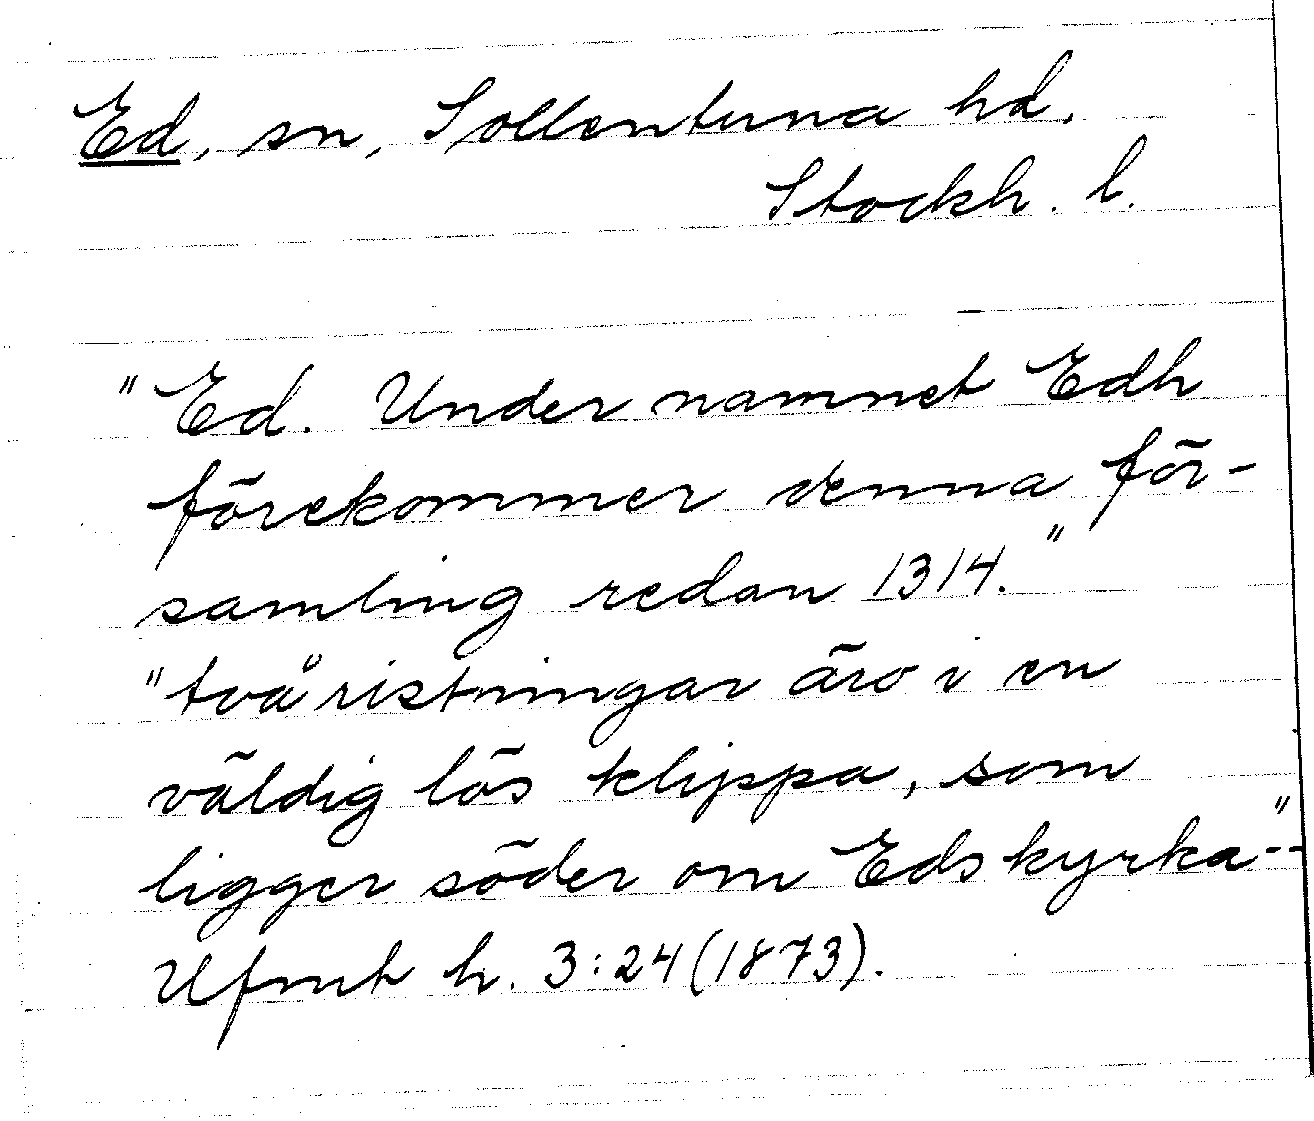 Ed, sn, Sollentuna hd,
Stockh. l.
"Ed. Under namnet Edh
förekommer denna för-
samling redan 1314."
"två ristningar äro i en
väldig lös klippa, som
ligger söder om Eds kyrka--"
Ufmt h. 3:24 (1873).